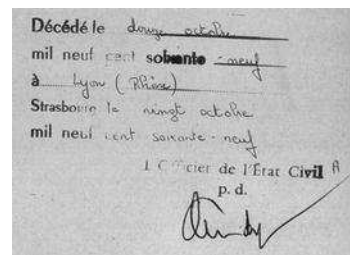 Décédé le douze octobre
mil neuf cent soixante - neuf
à Lyon (Rhône)
Strasbourg le vingt octobre
mil neuf cent soixante - neuf
L'Officier de l'Etat Civil
p. d.